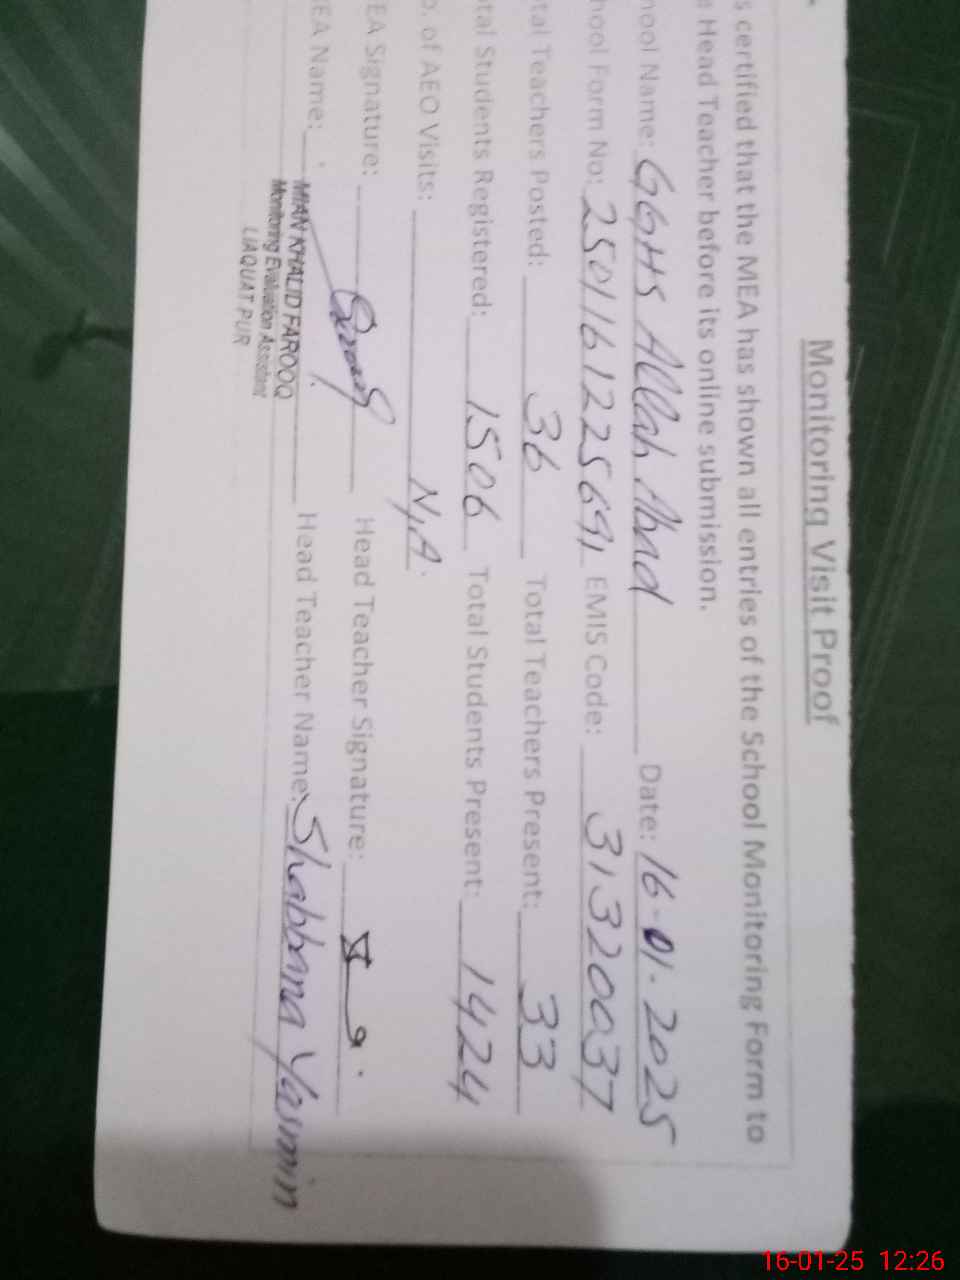 Monitoring Visit Proof
s certified that the MEA has shown all entries of the School Monitoring Form to
Head Teacher before its online submission.
hool Name: GGHS Allah Abad Date: 16-01-2025
hool Form No: 2501161225691 EMIS Code: 31320037
tal Teachers Posted: 36 Total Teachers Present: 33
tal Students Registered: 1506 Total Students Present: 1424
o. of AEO Visits: N,A.
EA Signature: Head Teacher Signature:
EA Name: MIAN KHALID FAROOQ Head Teacher Name: Shabbana Yasmin
Monitoring Evaluation Assistant
LIAQUAT PUR
16-01-25 12:26